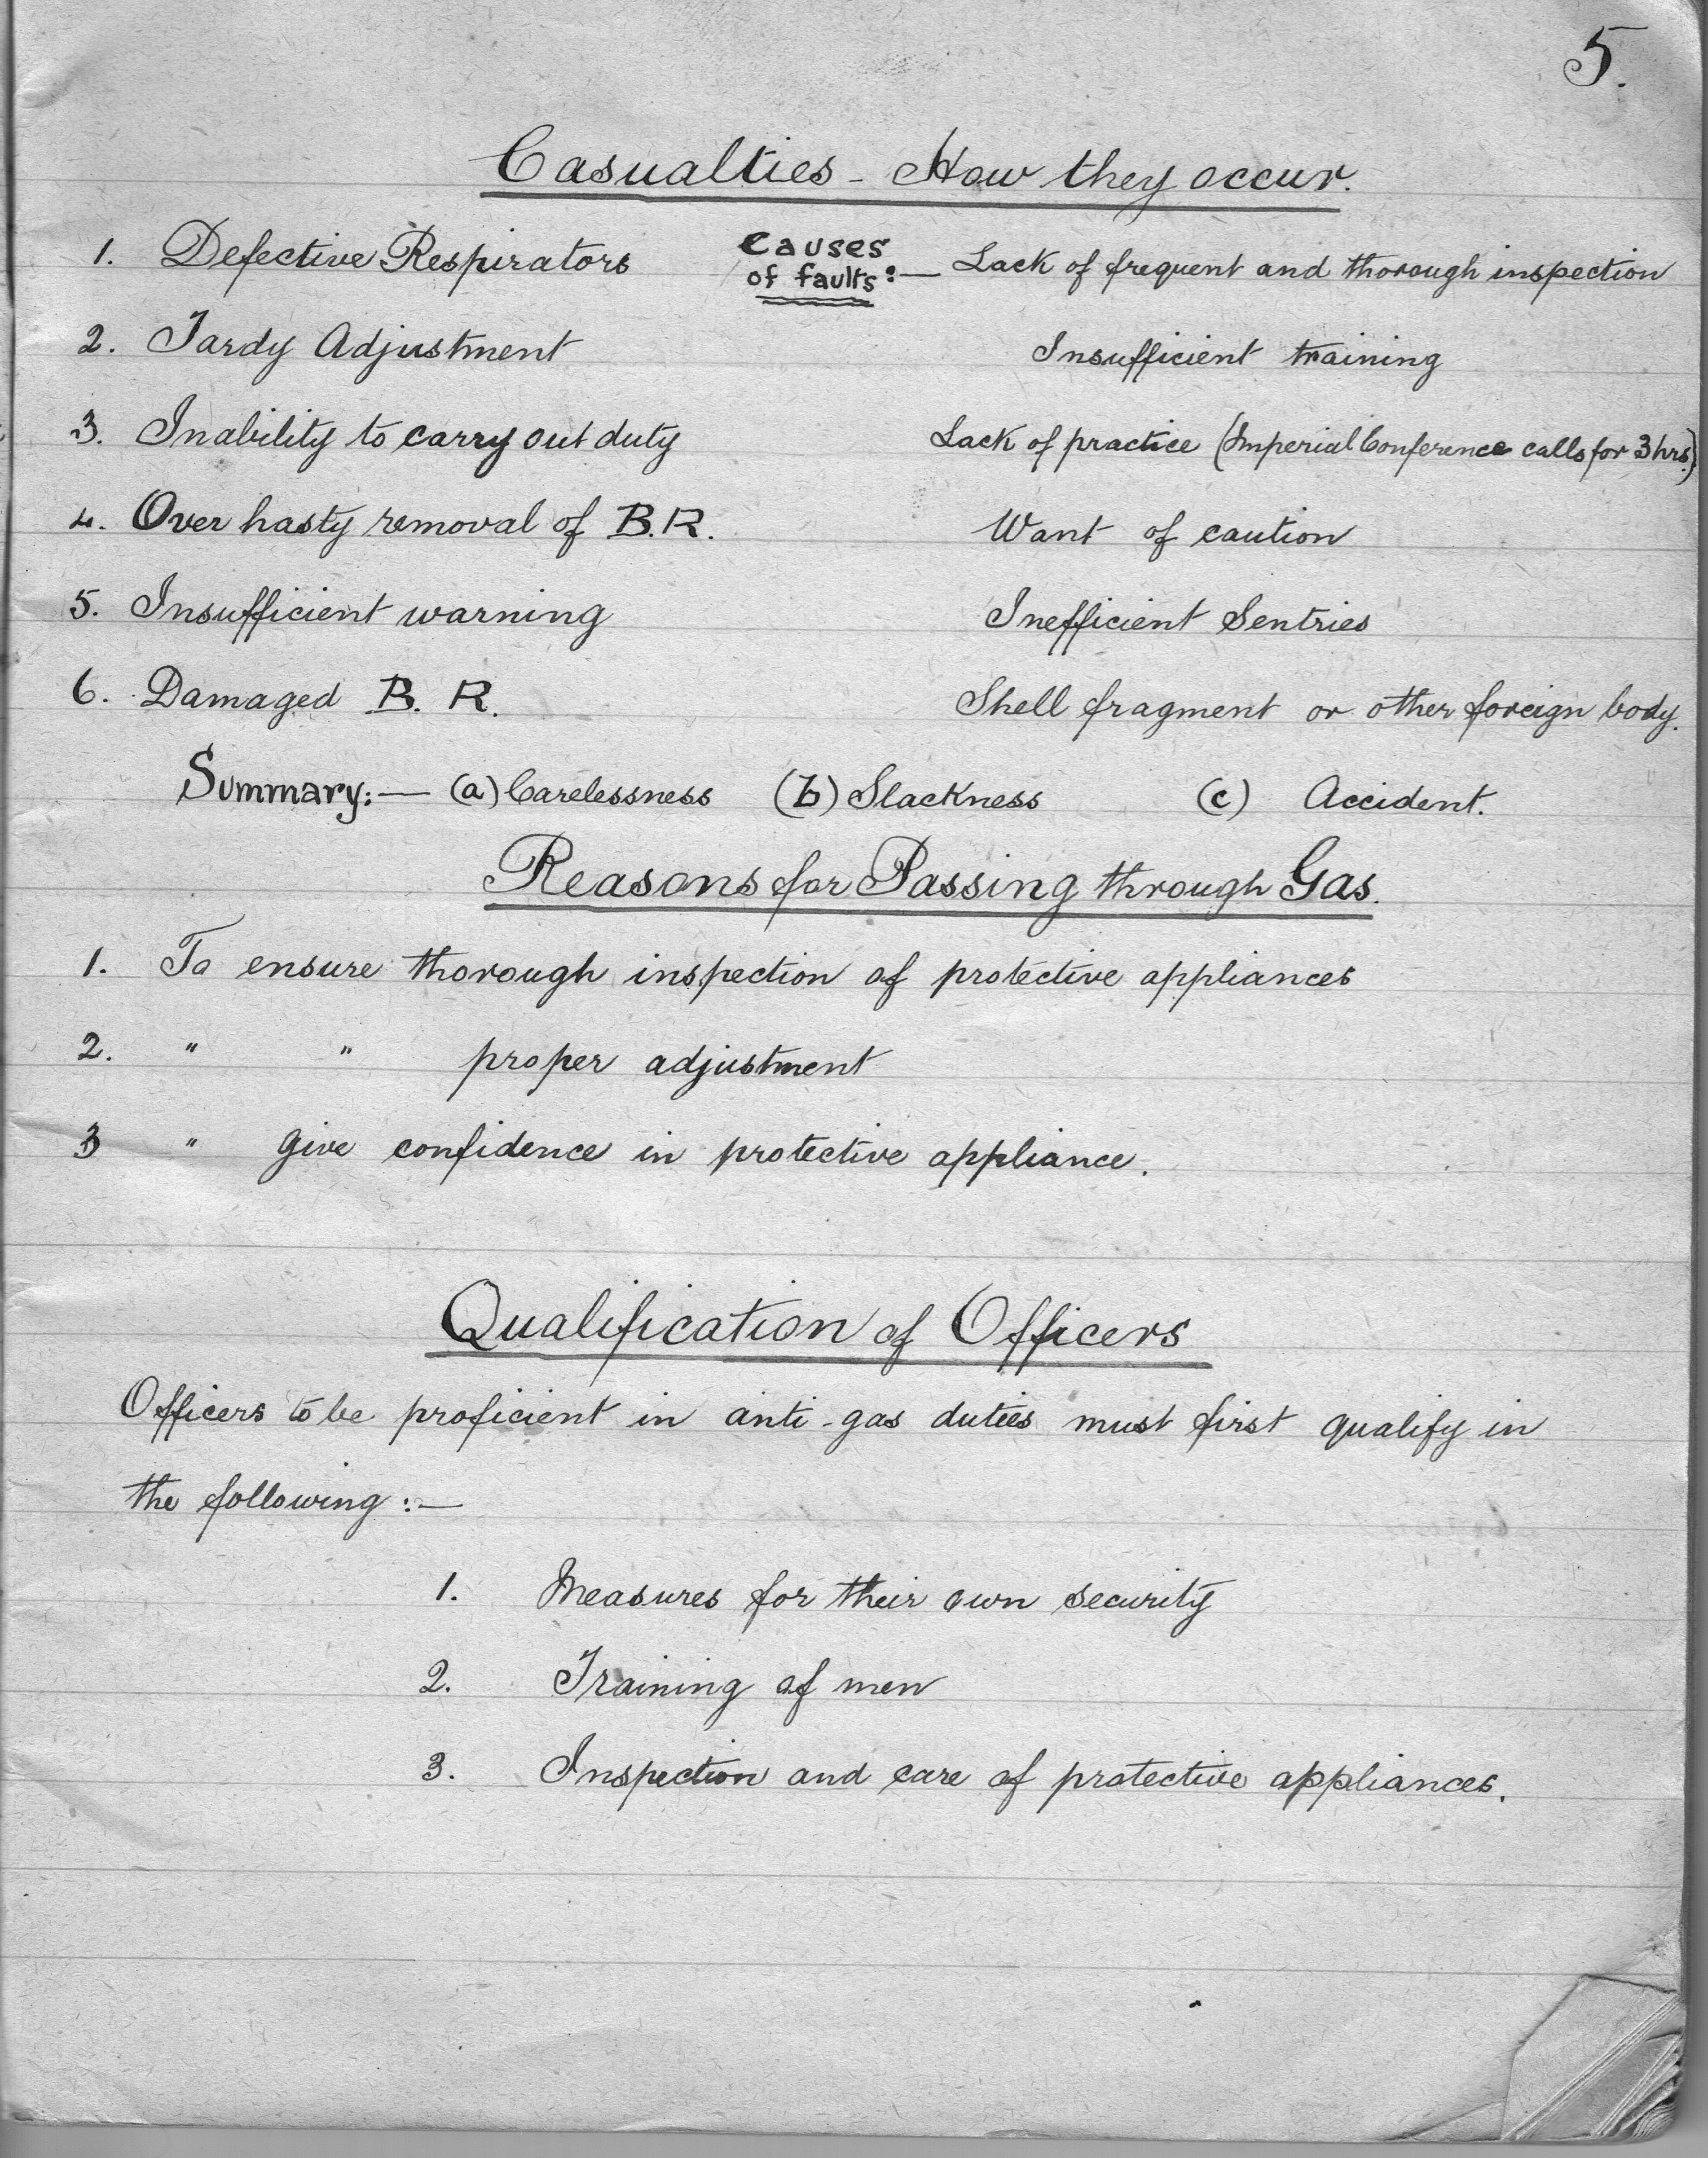 5.
Casualties - How they occur.
1. Defective Respirators Causes of faults:— Lack of frequent and thorough inspection
2. Tardy Adjustment Insufficient training
3. Inability to carry out duty Lack of practice (Imperial Conference calls for 3 hrs.)
4. Over hasty removal of B.R. Want of caution
5. Insufficient warning Inefficient Sentries
6. Damaged B. R. Shell fragment or other foreign body.
Summary:— (a) Carelessness (b) Slackness (c) Accident.
Reasons for Passing through Gas.
1. To ensure thorough inspection of protective appliances
2. " " proper adjustment
3 " give confidence in protective appliance.
Qualification of Officers
Officers to be proficient in anti-gas duties must first qualify in
the following:—
1. Measures for their own security
2. Training of men
3. Inspection and care of protective appliances.